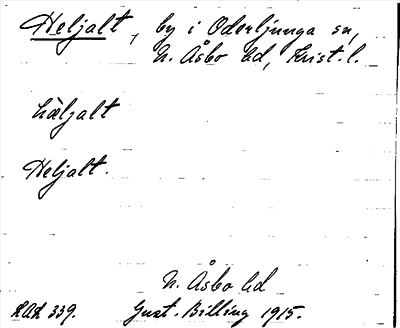 Heljalt, by i Oderljunga sn,
N. Åsbo hd, Krist. l.
hàljalt
Heljalt.
N. Åsbo hd
RAÄ 339. Gust. Billing 1915.